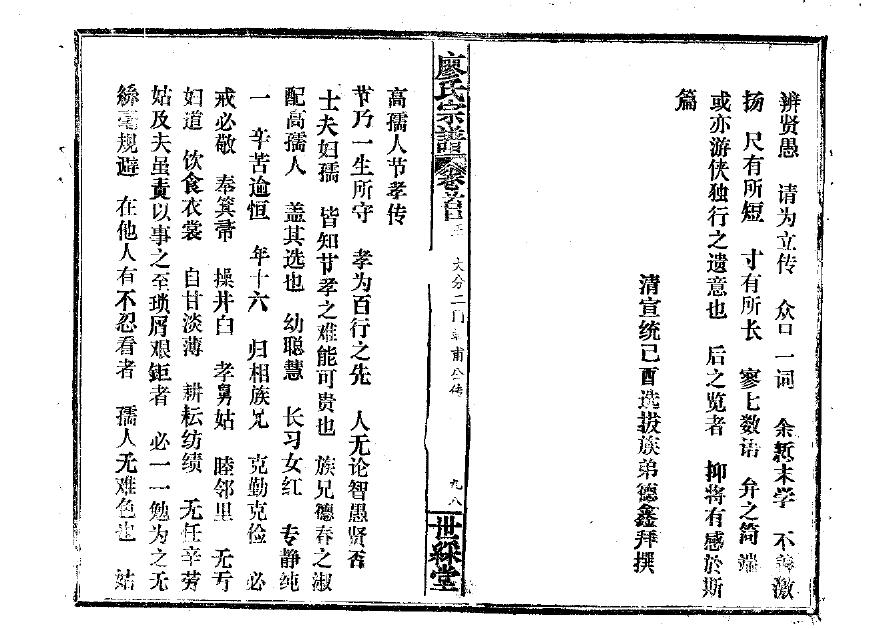 辨贤愚 请为立传 众口一词 余惭末学 不善激
扬 尺有所短 寸有所长 寥匕数语 弁之简端
或亦游侠独行之遗意也 后之览者 抑将有感於斯
篇
清宣统己酉选拔族弟德鑫拜撰
廖氏宗譜
大分二门
公传
九八
世綵堂
高孺人节孝传
节乃一生所守 孝为百行之先 人无论智愚贤否
士夫妇孺 皆知节孝之难能可贵也 族兄德春之淑
配高孺人 盖其选也 幼聪慧 长习女红 专静纯
一 辛苦逾恒 年十六 归相族兄 克勤克俭 必
戒必敬 奉箕帚 操井臼 孝舅姑 睦邻里 无亏
妇道 饮食衣裳 自甘淡薄 耕耘纺绩 无任辛劳
姑及夫虽责以事之至琐屑艰鉅者 必一一勉为之无
絲毫规避 在他人有不忍看者 孺人无难色也 姑